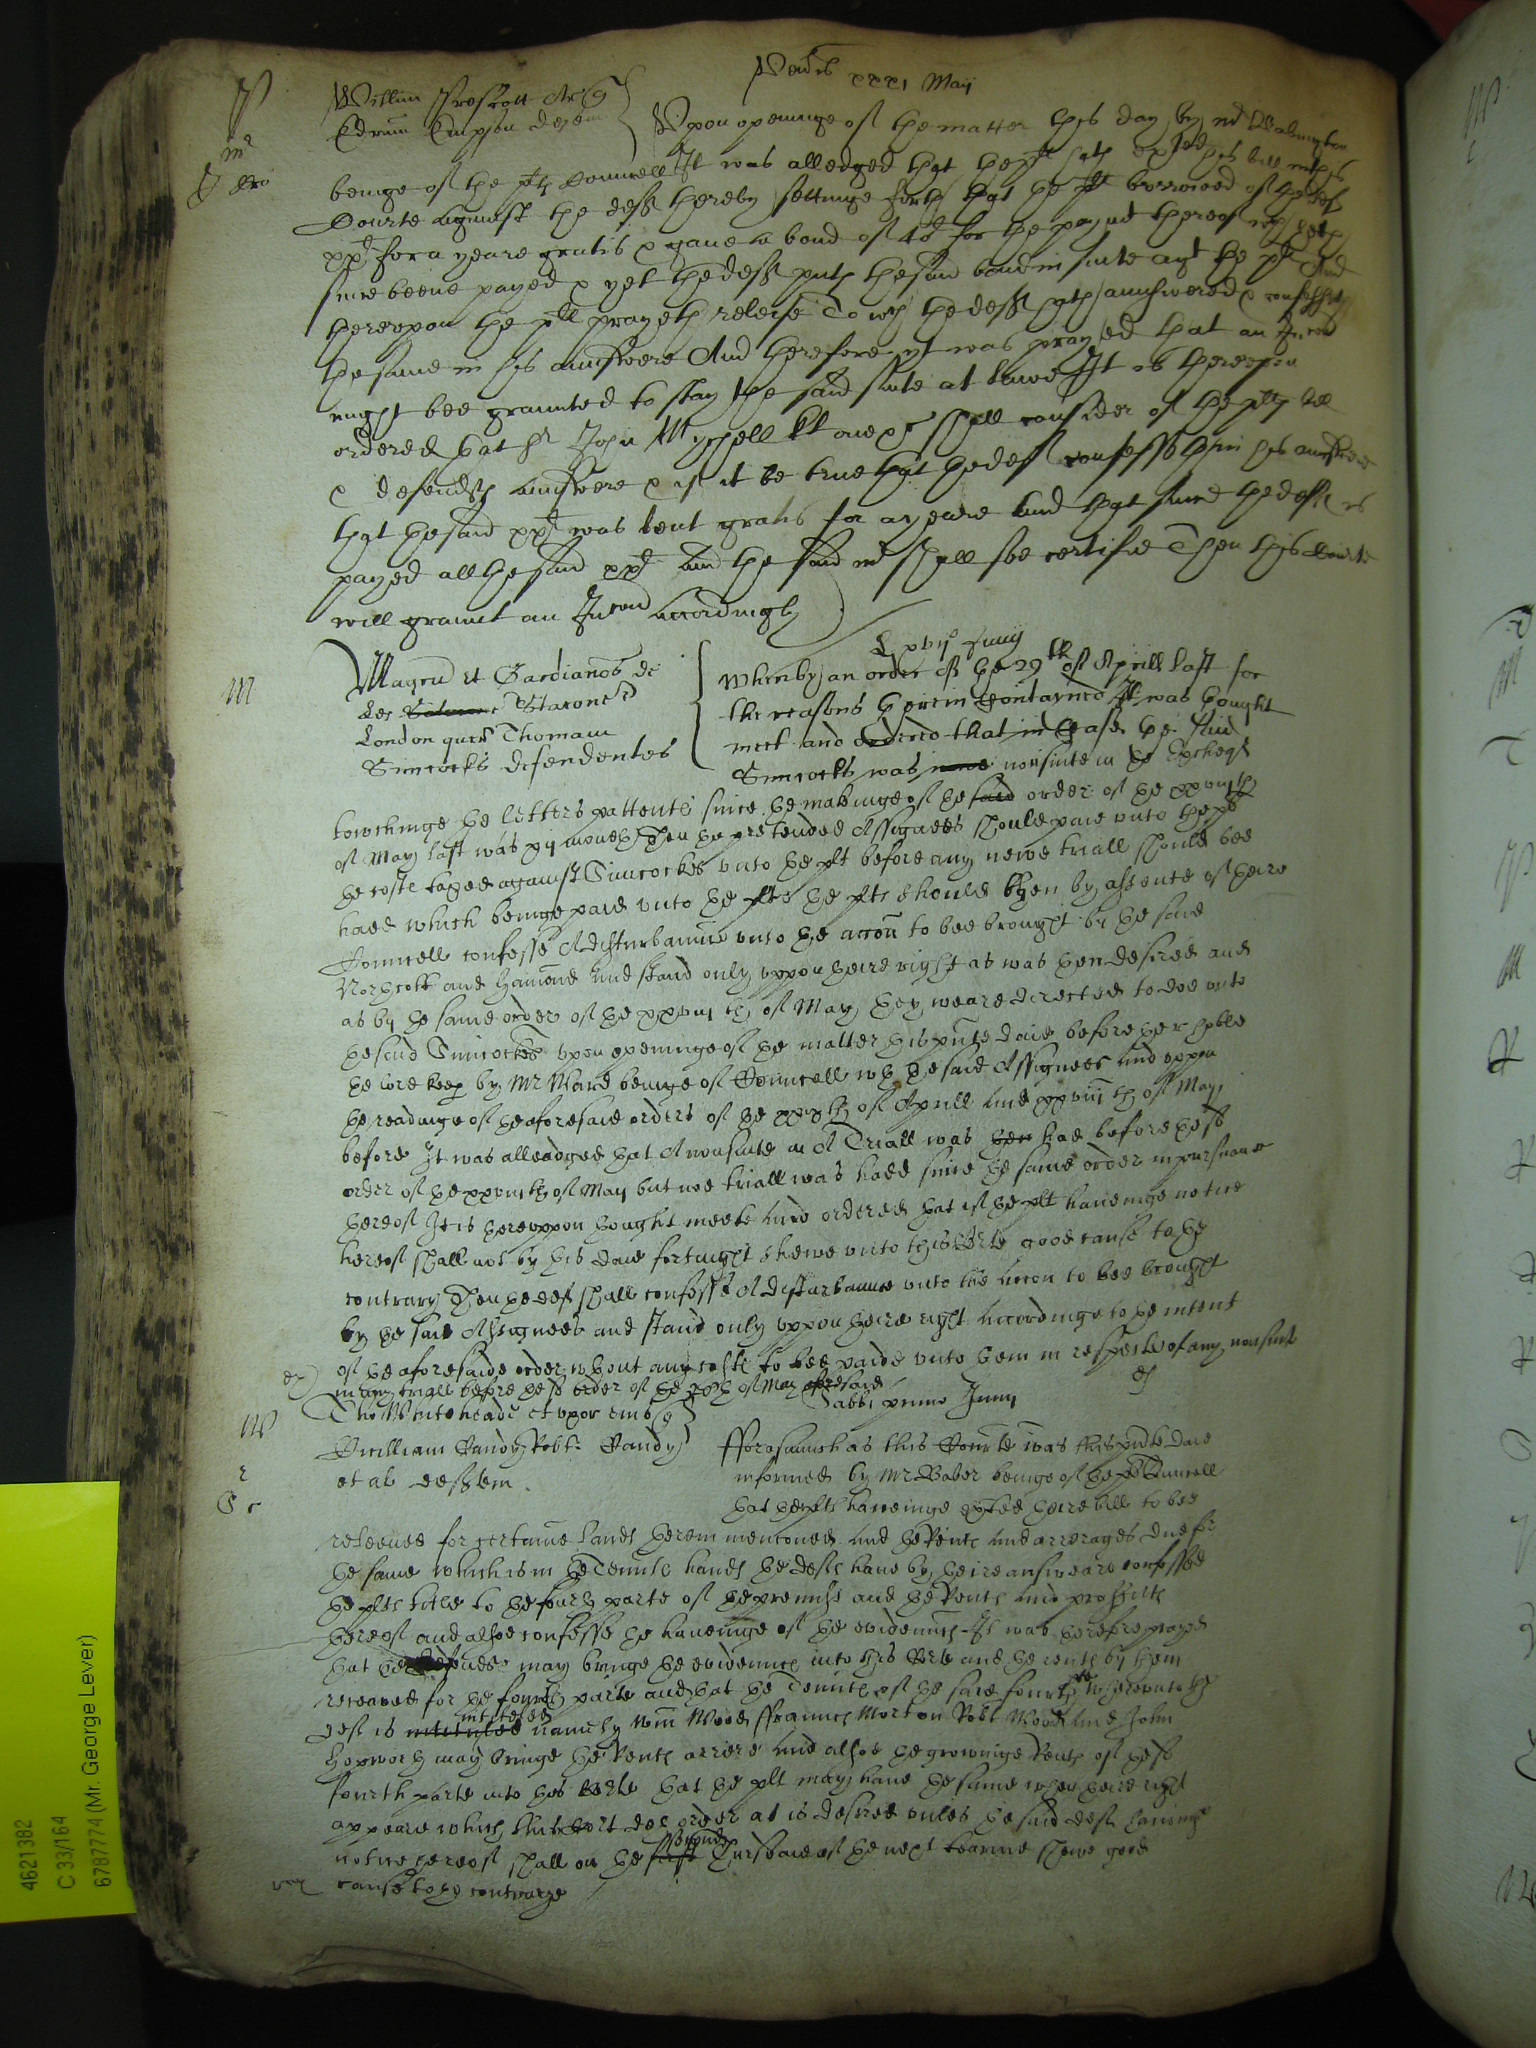 Veneris xxxi May
Willim Prescott
Edrum Empson
Upon openinge of the matter this day by mr Walmington
beinge of the plts Councell It was alledged that the plt hath exhted his bill into this
Courte against the deft thereby settinge forth that he the plt borrowed of the deft
xxli for a yeare gratis & gave a bond of for the paymt thereof
since beene payed & yet the deft putt the said bond in suite agt the plt And
hereupon the plt prayeth releise To wch the deft hath aunswered & confesseth
the same in his aunswere And therefore yt was prayed that an Iniuncon
might bee graunted to stay the said suite at lawe It is thereupon
ordered that Sr John Mychell kt one &c shall consider of the plts bill
& defendts aunswere & if it be true that the deft confesseth in his aunswere
that the said xxli was lent gratis for a yeare And that since the deft is
payed all the said xxli and the said mr shall soe certifie Then this Courte
will graunt an Iniuncon accordingly
M
Magrm et Gardianos de
les Staconers
London quer Thomam
Simcocks defendentes
Junij
When by an order of the 29th of Aprill last for
the reasons therein contayned It was thought
meet and ordered that in case the said
Simcocks was nonsuite in the Excheqr
towchinge the letters pattents since the makinge of the said order of the xxviijth
of May last was moved Then the pretended Assignees should paie unto the plt
the costs taxed against Simcockes unto the plt before any newe triall should bee
had which beinge paid unto the plts the plts should then by assente of theire
Councell confesse A disturbaunce unto the accon to bee brought by the said
Northcott and Hamond and stand only uppon theire right as was then desired and
as by the same order of the xxviijth of May they weare directed to doe unto
the said Simcockes upon openinge of the matter this pnte daie before the
the lord keeper by Mr Ward beinge of Councell wth the said Assignees and uppon
the readinge of the aforesaid orders of the xxixth of Aprill and xxviijth of May
before It was alleadged that A nonsuite in A Triall was had before the sd
order of the xxviijth of May but noe triall was had since the same order in pursuance
thereof It is thereuppon thought meete and ordered that if the plt haveinge notice
hereof shall not by this daie fortnight shewe unto this Corte good cause to the
contrary Then the deft shall confesse A disturbaunce unto the accon to bee brought
by the said Assignees and stand only uppon theire right Accordinge to the intent
of the aforesaide order without any costs to bee paide unto them in respecte of any nonsuite
in any triall before the sd order of the 28th of May aforesaid
Sabbi primo Junij
Tho Whiteheade et uxor eius
William Candy Robt Candy
et al defts
Fforasmuch as this Courte was this pnte daie
informed by Mr Baber beinge of the plts Councell
that the plts haveinge exhted theire bill to bee
releeved for certaine lands therein menconed and the Rents and arrerages due for
the same which is in the Tennts hands the defts have by theire answeare confessed
the plts title to the fourth parte of the premisses and the Rents and proffitts
thereof and alsoe confesse the haveinge of the evidences It was therefore prayed
that the may bringe the evidences into this Corte and the rents by them
receaved for the fourth parte and that the Tennts of the said fourth pte whereunto the
deft is intituled intituled namely Wm Wood Ffrancis Morton Robt Wood and John
Hepworth may bringe the Rents arriere and alsoe the growinge Rents of the sd
fourth parte into this Corte that the plt may have the same when theire right
appeare which this Cort doe order as is desired unles the said defts haveinge
notice thereof shall on the second Thursdaie of the next tearme shewe good
cause to the contrarye
4621382
C 33/164
6787774 (Mr. George Lever)